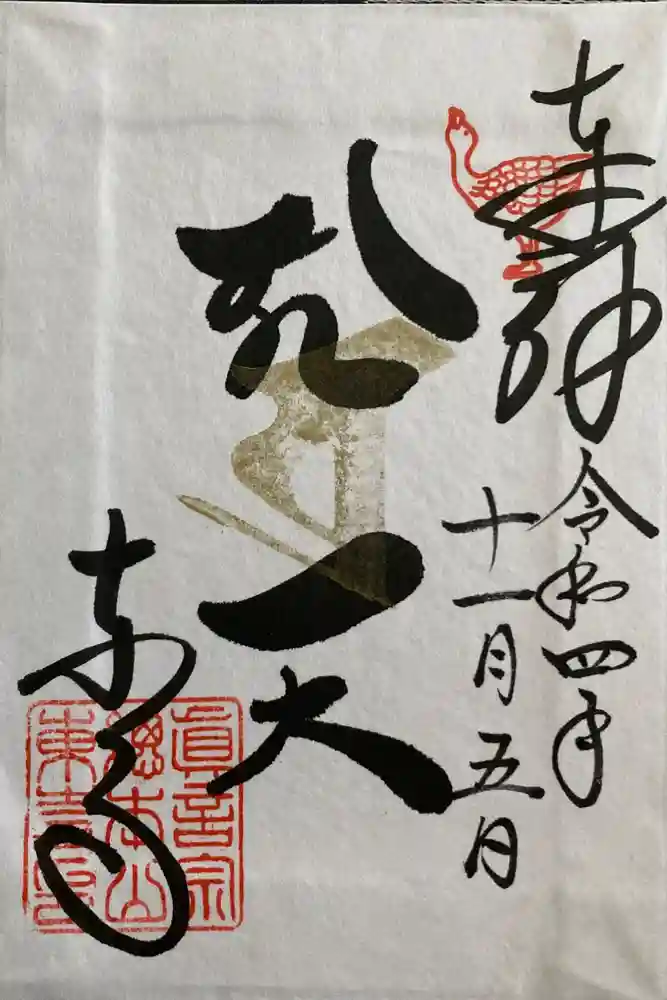 奉拝
令和四年
十一月五日
大
東寺
眞言宗
總本山
東寺印